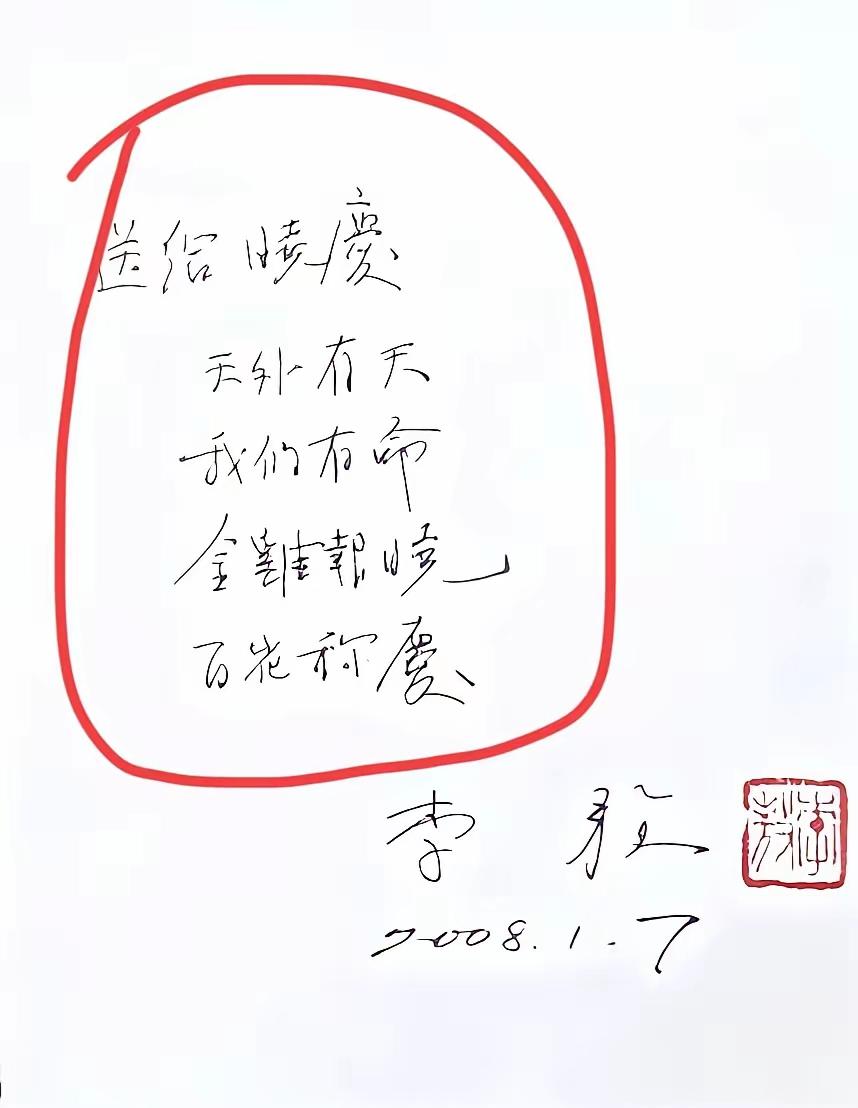 送給曉慶
天外有天
我們有命
金雞報曉
百花称慶
李敖
2008.1.7